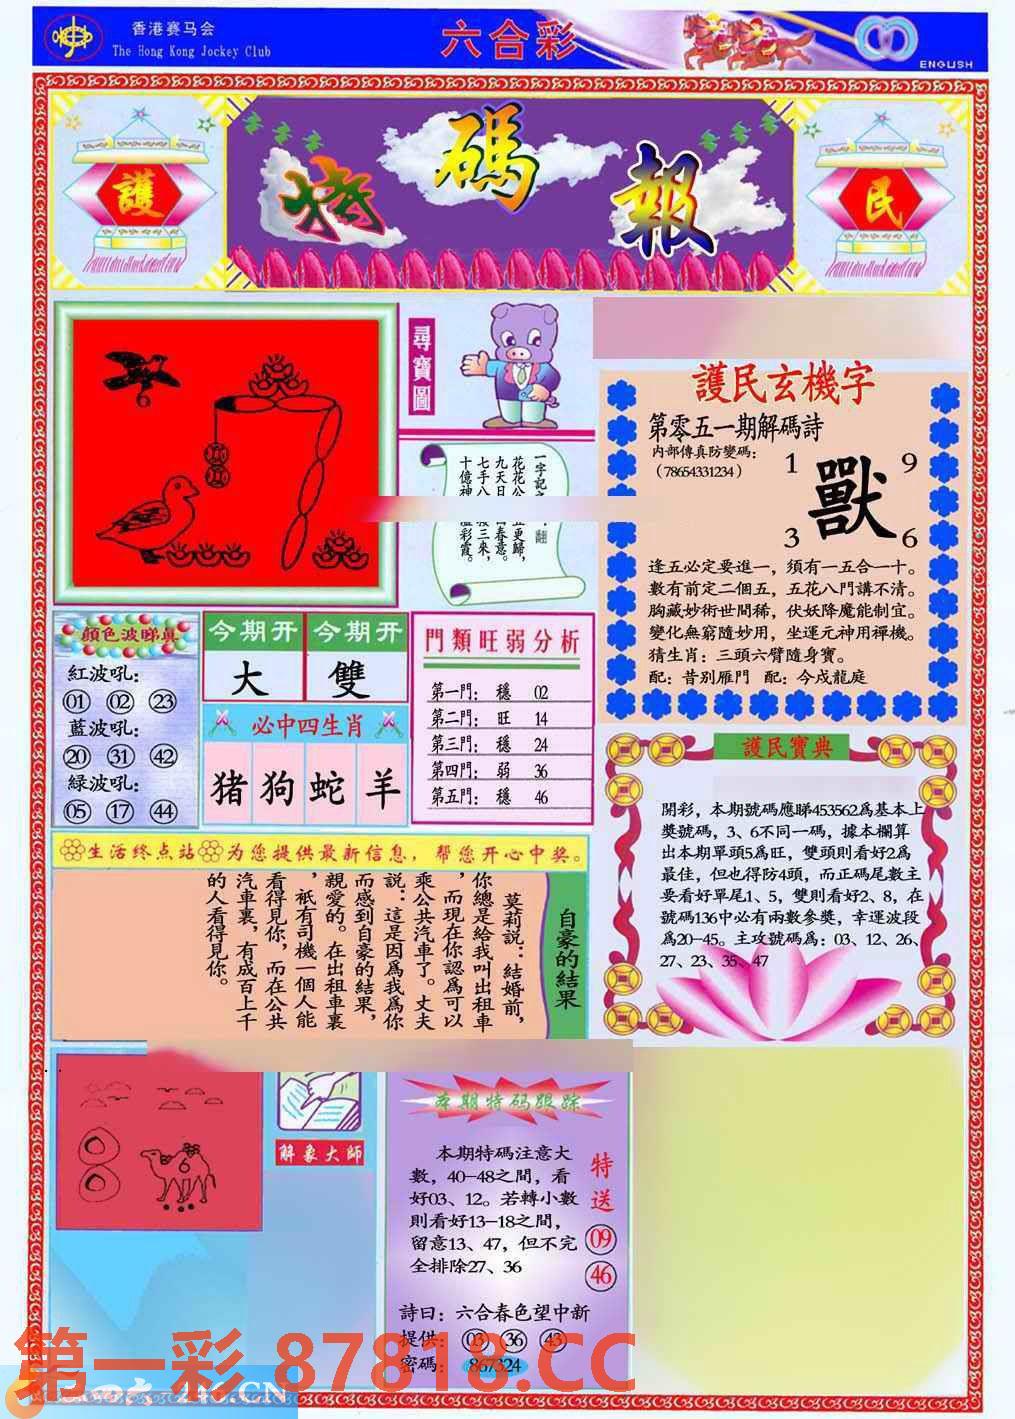 香港赛马会
The Hong Kong Jockey Club
六合彩
ENGLISH
護
特碼報
民
尋寶圖
6
一字記
花花公
九天日
七手八
十億神
翻
更歸,
春意。
三來,
彩霞。
護民玄機字
第零五一期解碼詩
内部傳真防變碼:
(78654331234)
1
9
獸
3
6
逢五必定要進一，須有一五合一十。
數有前定二個五，五花八門講不清。
胸藏妙術世間稀，伏妖降魔能制宜。
變化無窮隨妙用，坐運元神用禪機。
猜生肖：三頭六臂隨身寶。
配：昔别雁門 配：今戍龍庭
顔色波睇真
紅波吼:
01 02 23
藍波吼:
20 31 42
緑波吼:
05 17 44
今期开 今期开
大 雙
必中四生肖
猪 狗 蛇 羊
門類旺弱分析
第一門: 穩 02
第二門: 旺 14
第三門: 穩 24
第四門: 弱 36
第五門: 穩 46
護民寶典
開彩，本期號碼應睇453562爲基本上
獎號碼，3、6不同一碼，據本欄算
出本期單頭5爲旺，雙頭則看好2爲
最佳，但也得防4頭，而正碼尾數主
要看好單尾1、5，雙則看好2、8，在
號碼136中必有兩數參獎，幸運波段
爲20-45。主攻號碼爲：03、12、26、
27、23、35、47
生活终点站 为您提供最新信息，帮您开心中奖。
自豪的結果
莫莉說：結婚前，
你總是給我叫出租車
，而現在你認爲可以
乘公共汽車了。丈夫
説：這是因爲我爲你
而感到自豪的結果，
親愛的。在出租車裏
，祇有司機一個人能
看得見你，而在公共
汽車裏，有成百上千
的人看得見你。
6
解象大師
本期特码跟踪
本期特碼注意大
數，40-48之間，看
好03、12。若轉小數
則看好13-18之間，
留意13、47，但不完
全排除27、36
特送
09
46
詩曰：六合春色望中新
提供: 03 36 43
密碼: 867324
第一彩 87818.CC